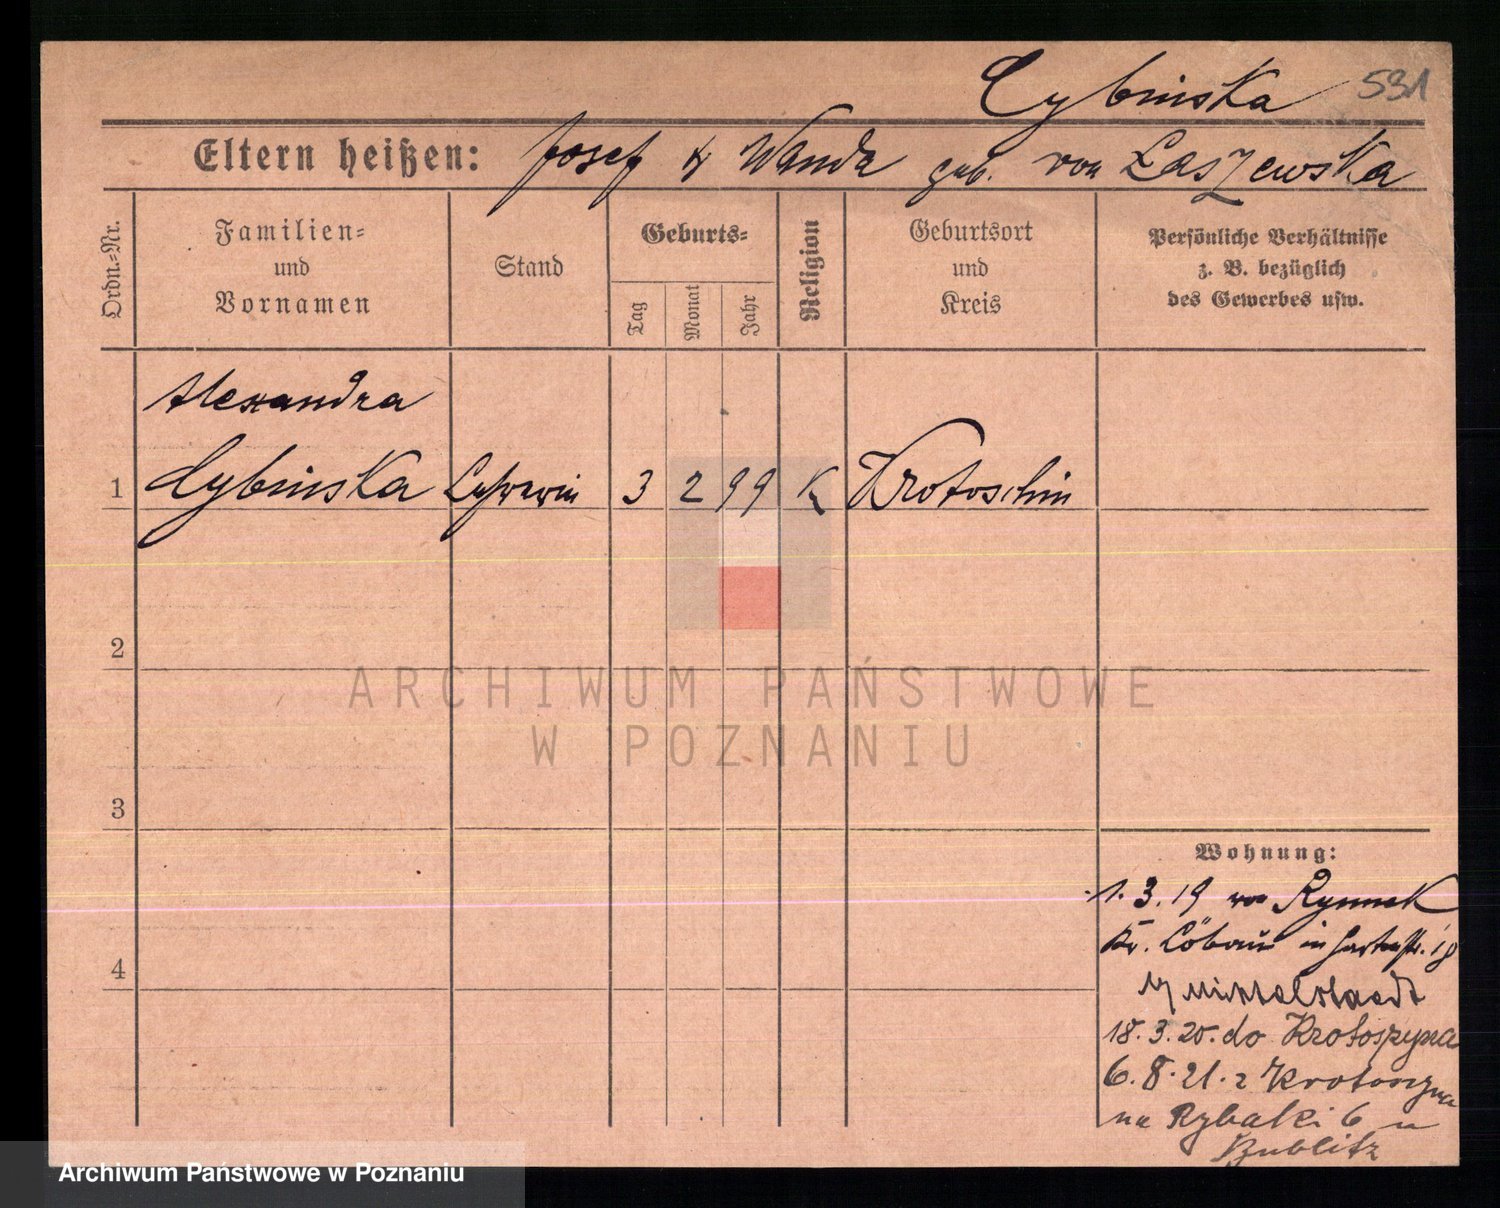 Cybinska 531
Eltern heißen: Josef & Wanda geb. von Laszewska
Ordn.-Nr.
Familien-
und
Vornamen
Stand
Geburts-
Tag
Monat
Jahr
Religion
Geburtsort
und
Kreis
Persönliche Verhältnisse
z. B. bezüglich
des Gewerbes usw.
Alexandra
1 Cybinska 3 2 99 K Krotoschin
2
ARCHIWUM PAŃSTWOWE
W POZNANIU
3
Wohnung:
1. 3. 19 von Rynnek
Kr. Löbau in Gartenstr. 18
b/ Mittelstaedt
18. 3. 20. do Krotoszyna
6. 8. 21. z Krotoszyna
na Rybaki 6 u
Bublitz
4
Archiwum Państwowe w Poznaniu